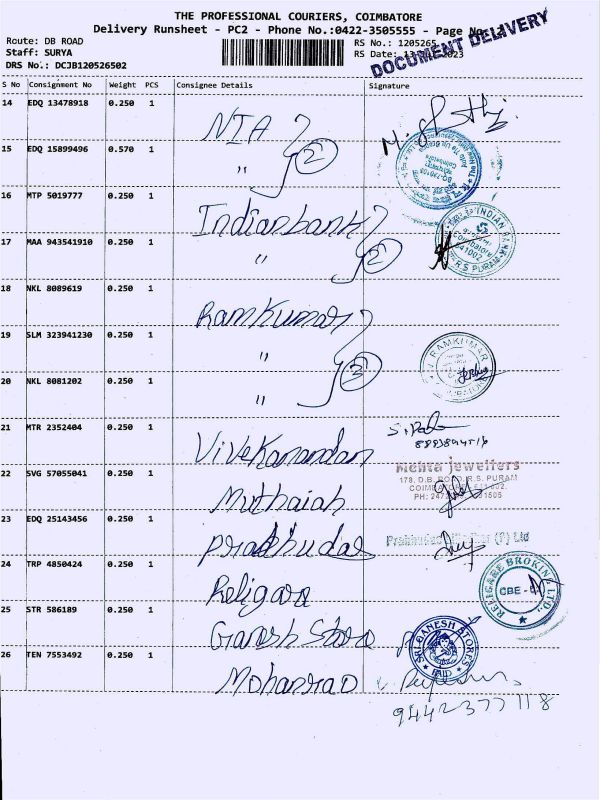 THE PROFESSIONAL COURIERS, COIMBATORE
Delivery Runsheet - PC2 - Phone No.:0422-3505555 - Page No.:
Route: DB ROAD
Staff: SURYA
DRS No.: DCJB120526502
RS No.: 1205265
RS Date:
DOCUMENT DELIVERY
S No Consignment No Weight PCS Consignee Details Signature
14 EDQ 13478918 0.250 1 NIA
15 EDQ 15899496 0.570 1 " 2
16 MTP 5019777 0.250 1 Indianbank
17 MAA 943541910 0.250 1 " 2
INDIAN BANK
R.S PURAM
18 NKL 8089619 0.250 1 Ramkumar
19 SLM 323941230 0.250 1 "
RAMKUMAR
20 NKL 8081202 0.250 1 " 3
21 MTR 2352404 0.250 1 Vivekanandan
22 SVG 57055041 0.250 1 Muthaiah
Mehta jewellers
178, D.B. ROAD, R.S. PURAM
23 EDQ 25143456 0.250 1 prabhudas
(P) Ltd
24 TRP 4850424 0.250 1 Religare
RELIGARE BROKING LTD.
CBE -
25 STR 586189 0.250 1 Ganesh Store
SRI GANESH STORES
26 TEN 7553492 0.250 1 Mohanrao
9442377118